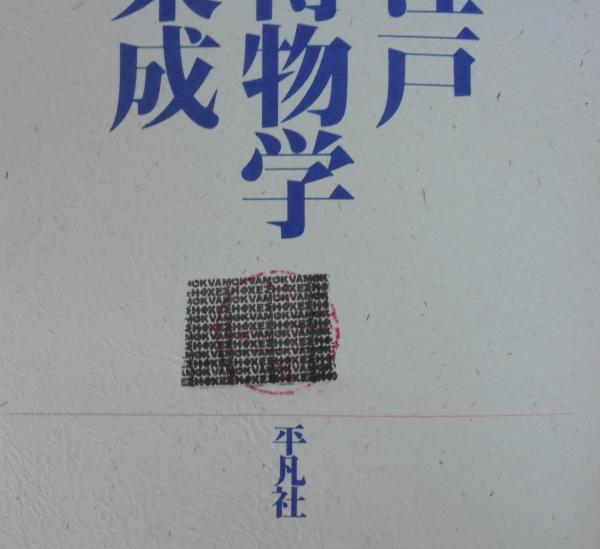 江戸
博物学
集成
平凡社